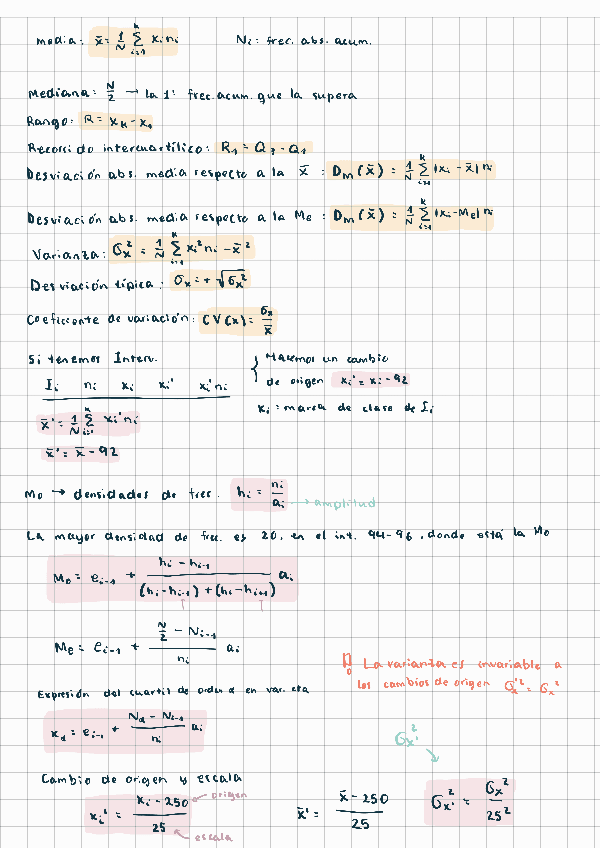 media: x̄ = 1/N Σ_{i=1}^{k} xᵢnᵢ Nᵢ: frec. abs. acum.
Mediana: N/2 → la 1ª frec. acum. que la supera
Rango: R = x_k - x₁
Recorrido intercuartílico: R₁ = Q₃ - Q₁
Desviación abs. media respecto a la x̄ : D_M(x̄) = 1/N Σ_{i=1}^{k} |xᵢ - x̄| nᵢ
Desviación abs. media respecto a la Me : D_M(x̄) = 1/N Σ_{i=1}^{k} |xᵢ - Me| nᵢ
Varianza: σₓ² = 1/N Σ_{i=1}^{k} xᵢ² nᵢ - x̄²
Desviación típica: σₓ = + √σₓ²
Coeficiente de variación: CV(x) = σₓ/x̄
Si tenemos Interv. { Hacemos un cambio
de origen xᵢ' = xᵢ - 92
Iᵢ nᵢ xᵢ xᵢ' xᵢ'nᵢ
xᵢ: marca de clase de Iᵢ
x̄' = 1/N Σ_{i=1}^{k} xᵢ'nᵢ
x̄' = x̄ - 92
Mo → densidades de frec. hᵢ = nᵢ/aᵢ → amplitud
La mayor densidad de frec. es 20, en el int. 94-96, donde está la Mo
Mo = eᵢ₋₁ + (hᵢ - hᵢ₋₁)/((hᵢ - hᵢ₋₁) + (hᵢ - hᵢ₊₁)) aᵢ
Me = eᵢ₋₁ + (N/2 - Nᵢ₋₁)/nᵢ aᵢ
La varianza es invariable a
los cambios de origen σₓ'² = σₓ²
Expresión del cuartil de orden α en var. cta
x_α = eᵢ₋₁ + (N_α - Nᵢ₋₁)/nᵢ aᵢ
σₓ'²
Cambio de origen y escala
xᵢ' = (xᵢ - 250)/25 x̄' = (x̄ - 250)/25 σₓ'² = σₓ²/25²
origen
escala